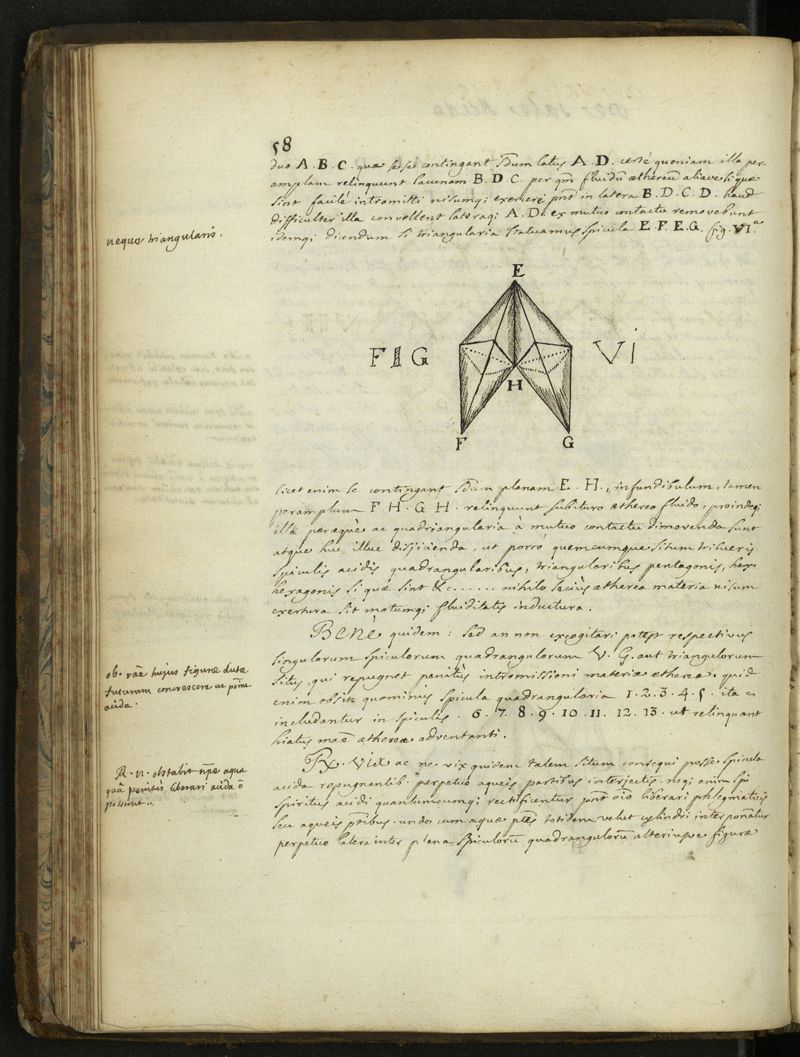 58
duo A. B. C. quæ sese contingant sdum latus A. D. certé quoniam illa per-
amplam relinquunt lacunam B. D. C. per qm̃ fluidũ æthereũ aliave si quæ
sint facilé intromitti nisumq; exercere pñt in latera B. D. C. D. haud
difficulter illa convellent lateraq; A. D. ex mutuo contactu removebunt
idemq; dicendum si triangularia statuamus spicula E. F. E. G. fig. VIª
neque triangularis.
E
FIG VI
H
F G
licet enim se contingant sdum planam E. H., infundibulum, tamen
peramplum F H. G H. relinquunt subituro æthereo fluido, proindeq;
illa peræquè ac quadriangularia à mutuo contactu dimovenda sunt
atque huc illuc disjicienda, ut porró quemcumque situm tribueris
spiculis acidis quadrangularibus, triangularibus pentagonis, hex-
hexagonis si quæ sint &c...... nihilo seciùs ætherea materia nisum
exertura sit motumq; fluiditatis inductura.
Benè quidem: sed an non excogitari potest respectivus
singulorum spiculorum quadrangulorum V. G. aut triangulorum
situs, qui repugnet penitùs intromissioni materiæ æthereæ, quid
enim obsit quominus spicula quadrangularia 1. 2. 3. 4. 5. ita
includantur in spiculis . 6. 7. 8. 9. 10. 11. 12. 13. ut relinquant
hiatus maæ̃ æthereæ adventanti.
ob. rãe hujus figuræ dutæ
futurum concrescere ut
acida.
ac ne vix quidem talem situm consequi posse spicula
acida repugnantib. perpetuo aqueis partibus interjectis. neq; enim spi
spiritus acidi quantumcumq; rectificentur pñt oĩo liberari phlegmaticis
seu aqueis ptibus. unde cum aquæ ptes totidem velut cylindri interponãtur
perpetuo latera inter plana spiculorũ quadrangulorũ alteriusve figuræ
R. n. obstabit ñpe aqua
quâ penitùs liberari acida õ
possunt..